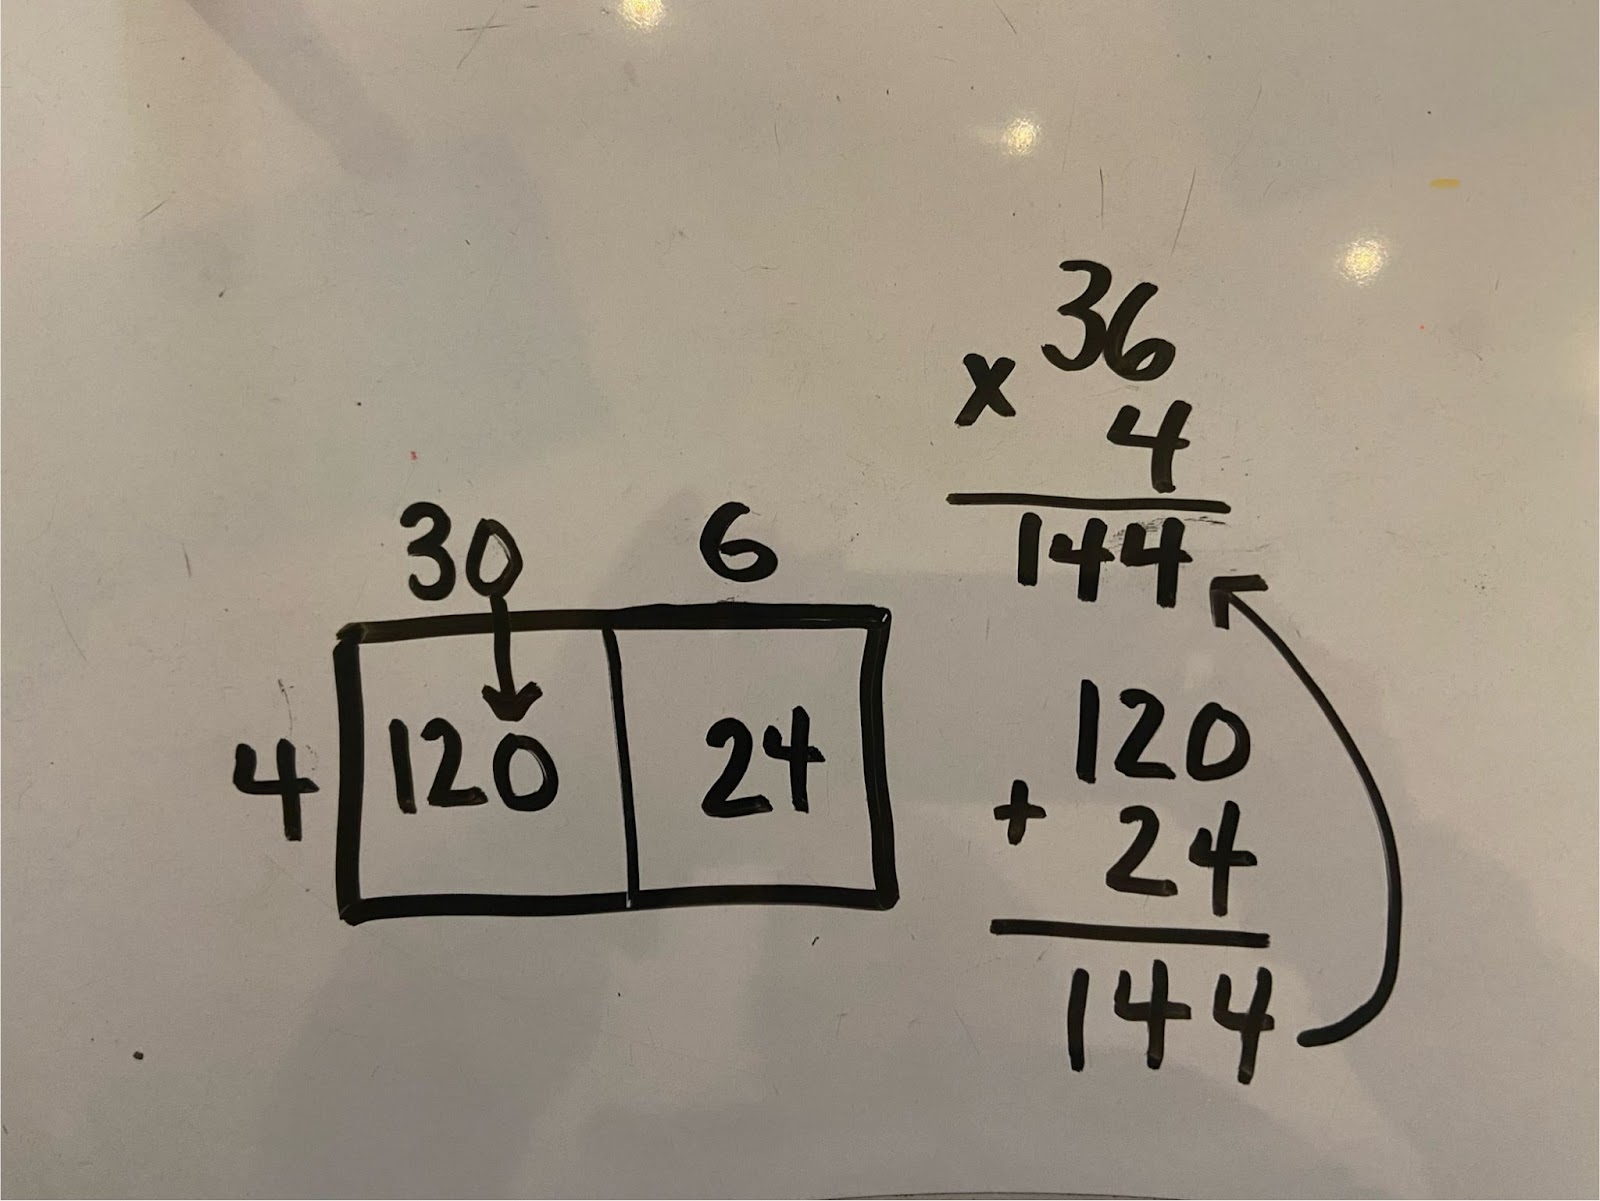 30 6
4 120 24
36
x 4
144
120
+ 24
144